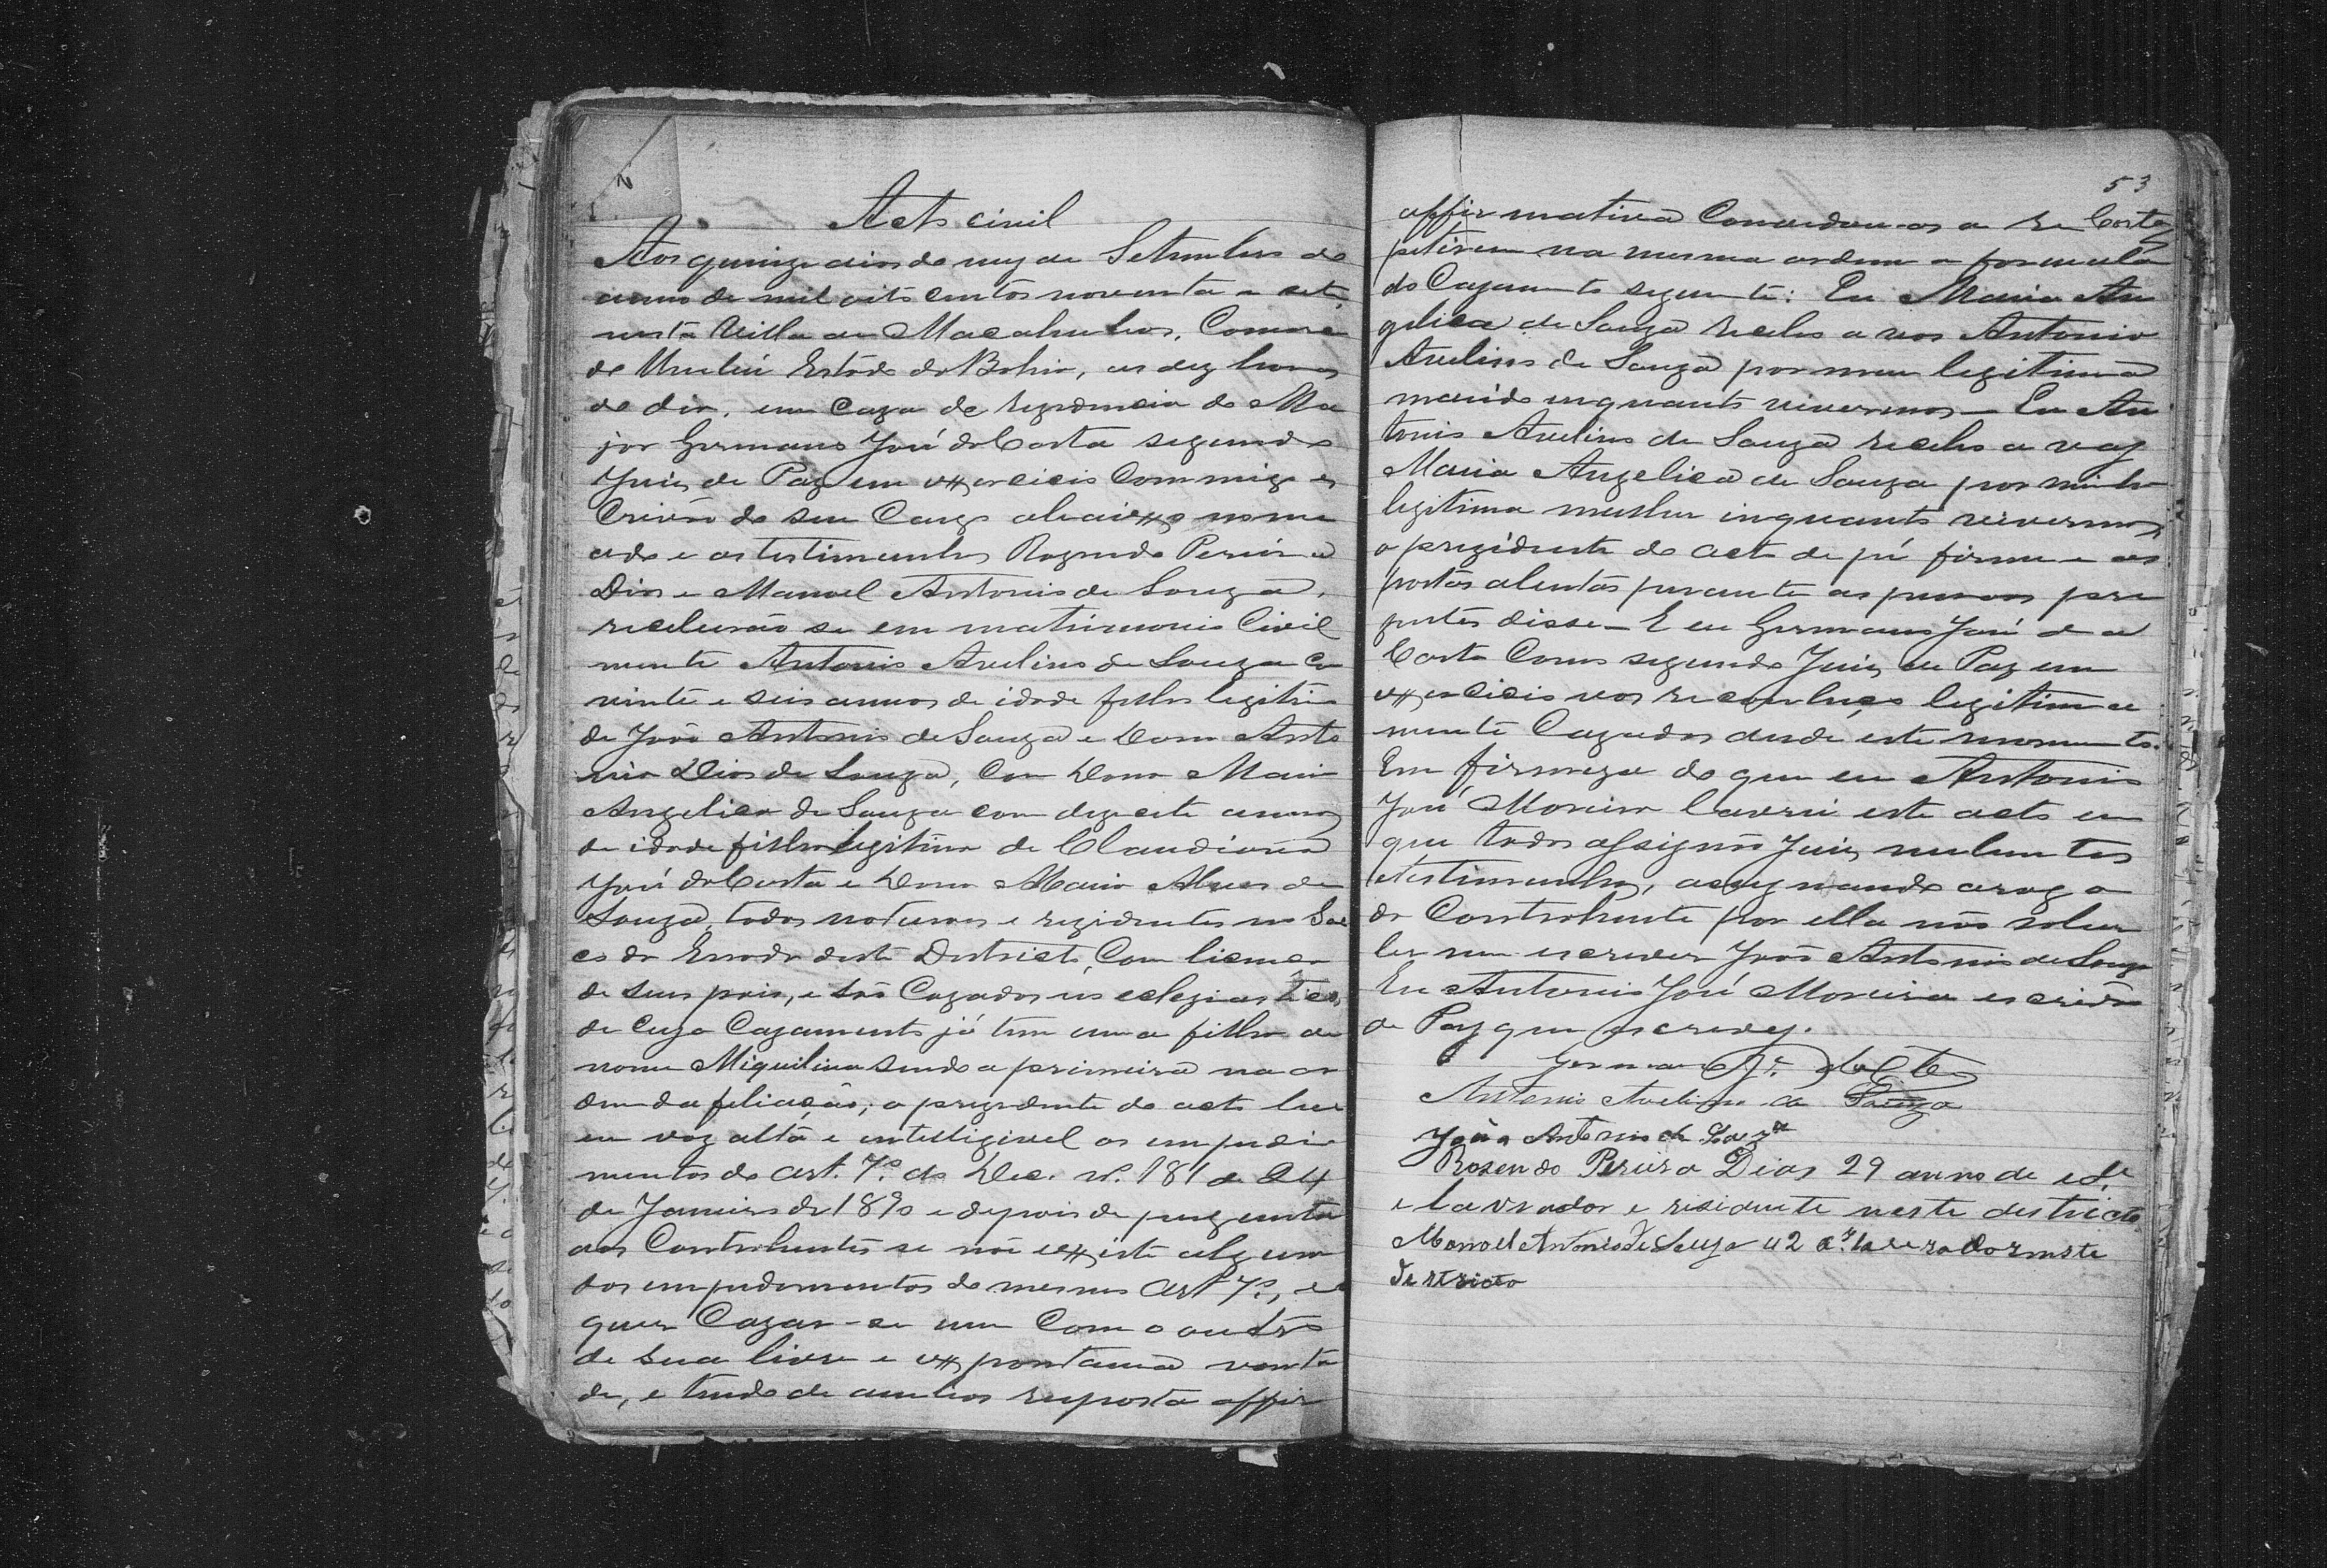 Acto civil
Aos quinze dias do mez de Setembro do
anno de mil oito centos noventa e sete
nesta Villa de Macahubas, Comarca
de Urubú Estado da Bahia, as dez horas
do dia, em Caza de rezidencia do Ma
jor Germano José da Costa segundo
Juiz de Paz em exercicio Commigo es
Crivão do seu Cargo abaixo nome
ado e as testimunhas Rozendo Pereira
Dias e Manoel Antonio de Souza,
receberão se em matrimonio Civil
mente Antonio Avelino de Souza com
vinte e seis annos de idade filho legitimo
de João Antonio de Souza e Dona Anto
nia Dias de Souza, Com Dona Maria
Angelica de Souza com dezeete annos
de idade filha legitima de Claudiano
José da Costa e Dona Maria Alves de
Souza, todos naturaes e rezidentes no
da deste Destricto, Com licença
de seus pais, e são Cazados no ecleziastico,
de cujo Cazamento já tem uma filha de
nome Miquilina sendo a primeira na or
dem da filiação; o prezidente do acto leu
em voz alta e intelligivel os empedi
mentos do art. 7º do Dec. nº 181 de 24
de Janeiro de 1890 e depois de pergunta
aos Contrahentes se não existe algum
dos empedimentos do mesmo art 7º, e
quer Cazar-se um Com o outro
de sua livre e expontania vonta
de, e tendo de ambos resposta affir
53
affirmativa Convidou-os a re Costa
petirem na mesma ordem a formula
do Cazamento seguinte: Eu Maria An
gelica de Souza recebo a vos Antonio
Avelino de Souza por meu legitimo
marido enquanto vivermos — Eu An
tonio Avelino de Souza recebo a vos
Maria Angelica de Souza por minha
legitima mulher inquanto vivermos
o prezidente do acto de pé firme e as
portas abertas perante as pessoas pre
zentes disse — E eu Germano José da
Costa Como segundo Juiz de Paz em
exercicio vos reconheço legitima
mente Cazados desde este momento.
Em firmeza do que eu Antonio
José Moreira lavrei este acto em
que todos assignão Juiz nubentes
e testimunhas, assignando arogo
da Contrahente por ella não saber
ler nem escrever João Antonio de Souza
Eu Antonio José Moreira escrivão
de Paz que escrevy.
Germano Jé. da Cta
Antonio Avelino de Souza
João Antonio de Souza
Rosendo Pereira Dias 29 anno de ede
e lavrador e residente neste destricto
Manoel Antonio de Souza 42 as. lavrador neste
destricto